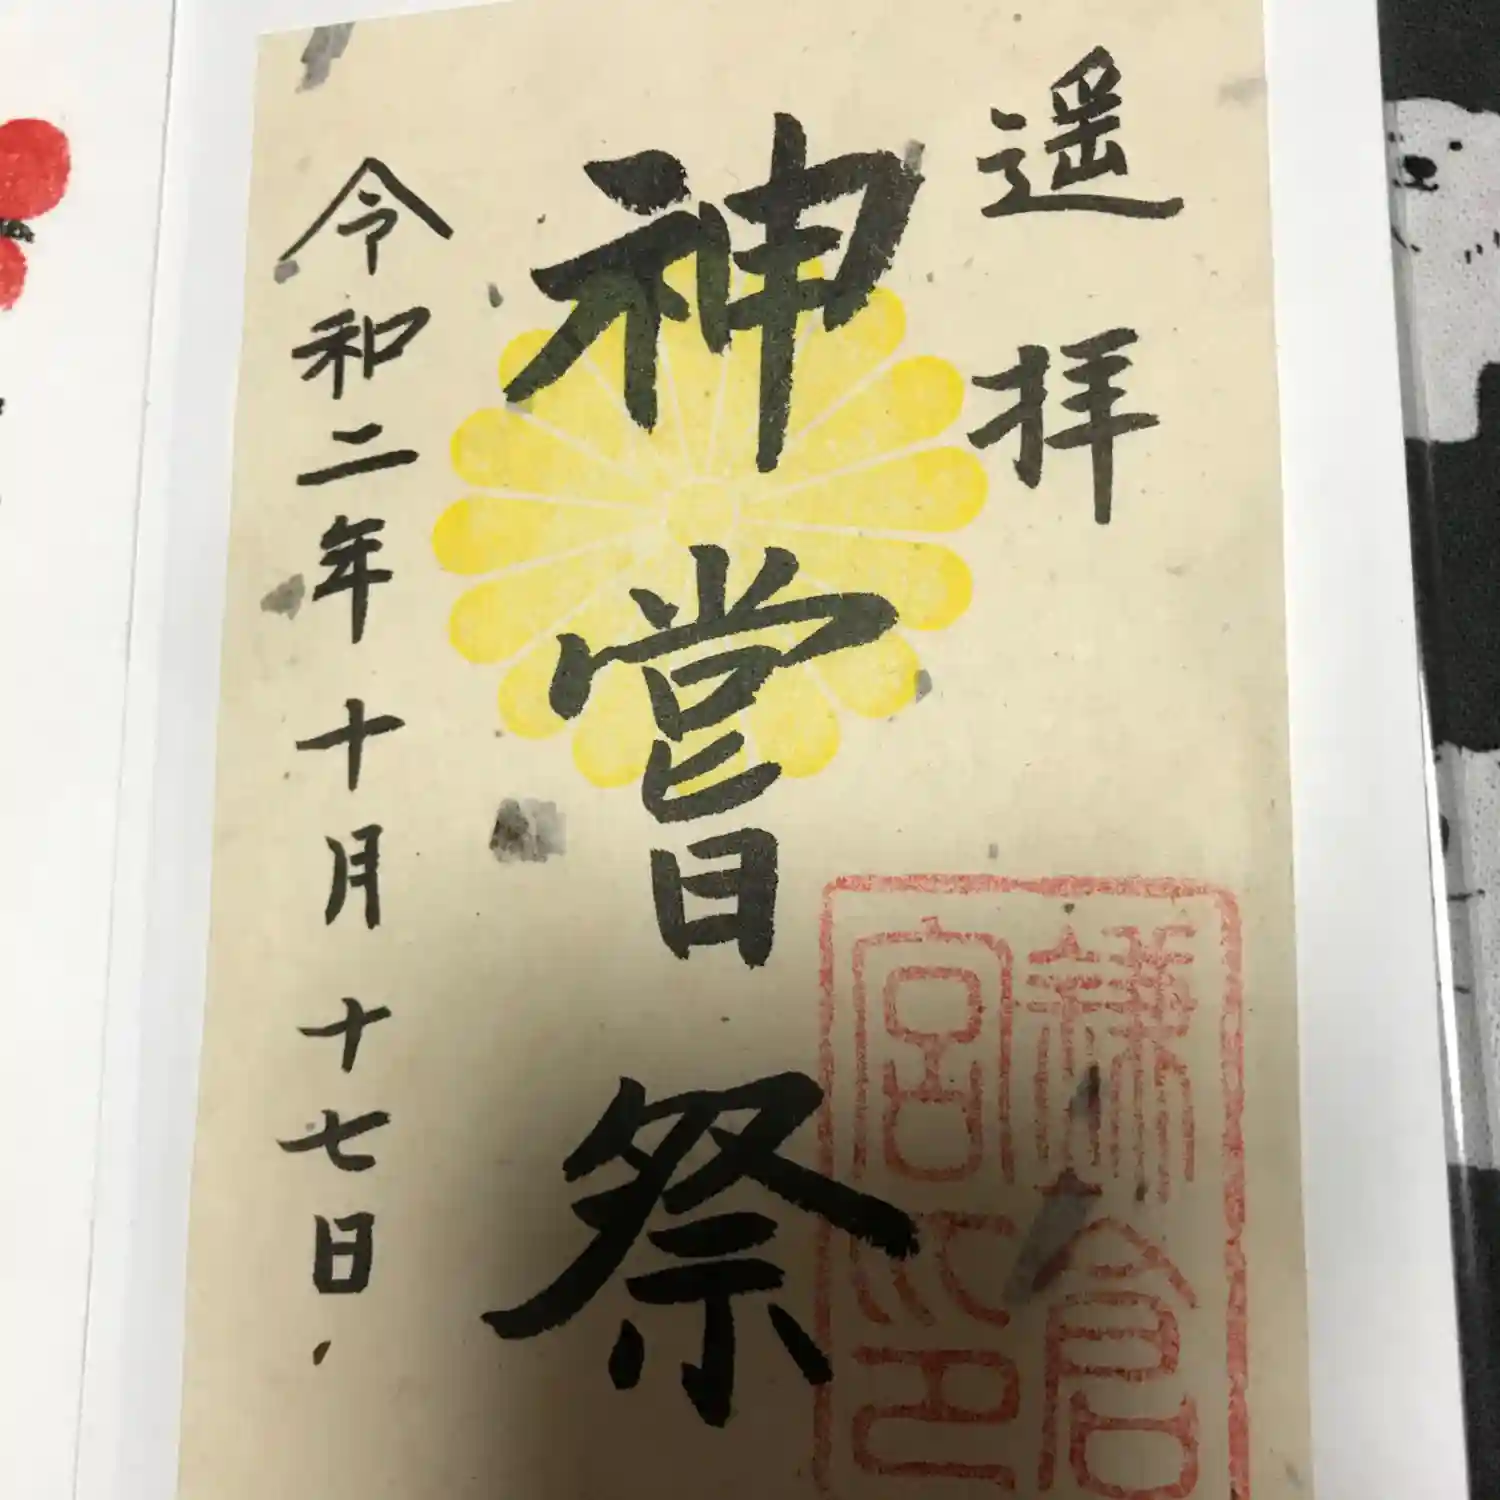 遥拝
神嘗祭
令和二年十月十七日
鎌倉
宮印